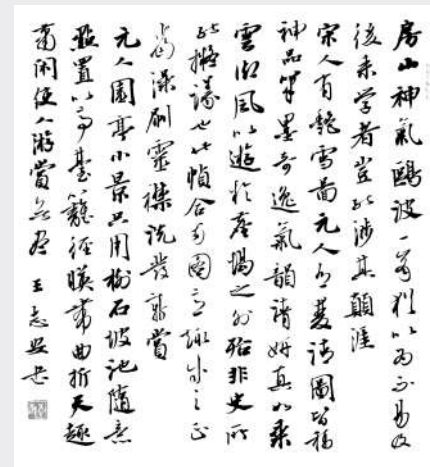 房山神氣鷗波一筆猶以為不易及
後来学者豈能涉其顛涯
宋人有艶雪圖元人有菱请圖皆称
神品笔墨奇逸氣韻清妍真如乘
雲御風以遊於塵壒之外殆非史所
能擬議也此幀合两圖之趣成之正
當澡刷靈襟悦發新賞
元人園亭小景只用樹石坡池随意
點置以亭臺籬徑映帶曲折天趣
蕭闲使人游賞无尽 王志安书